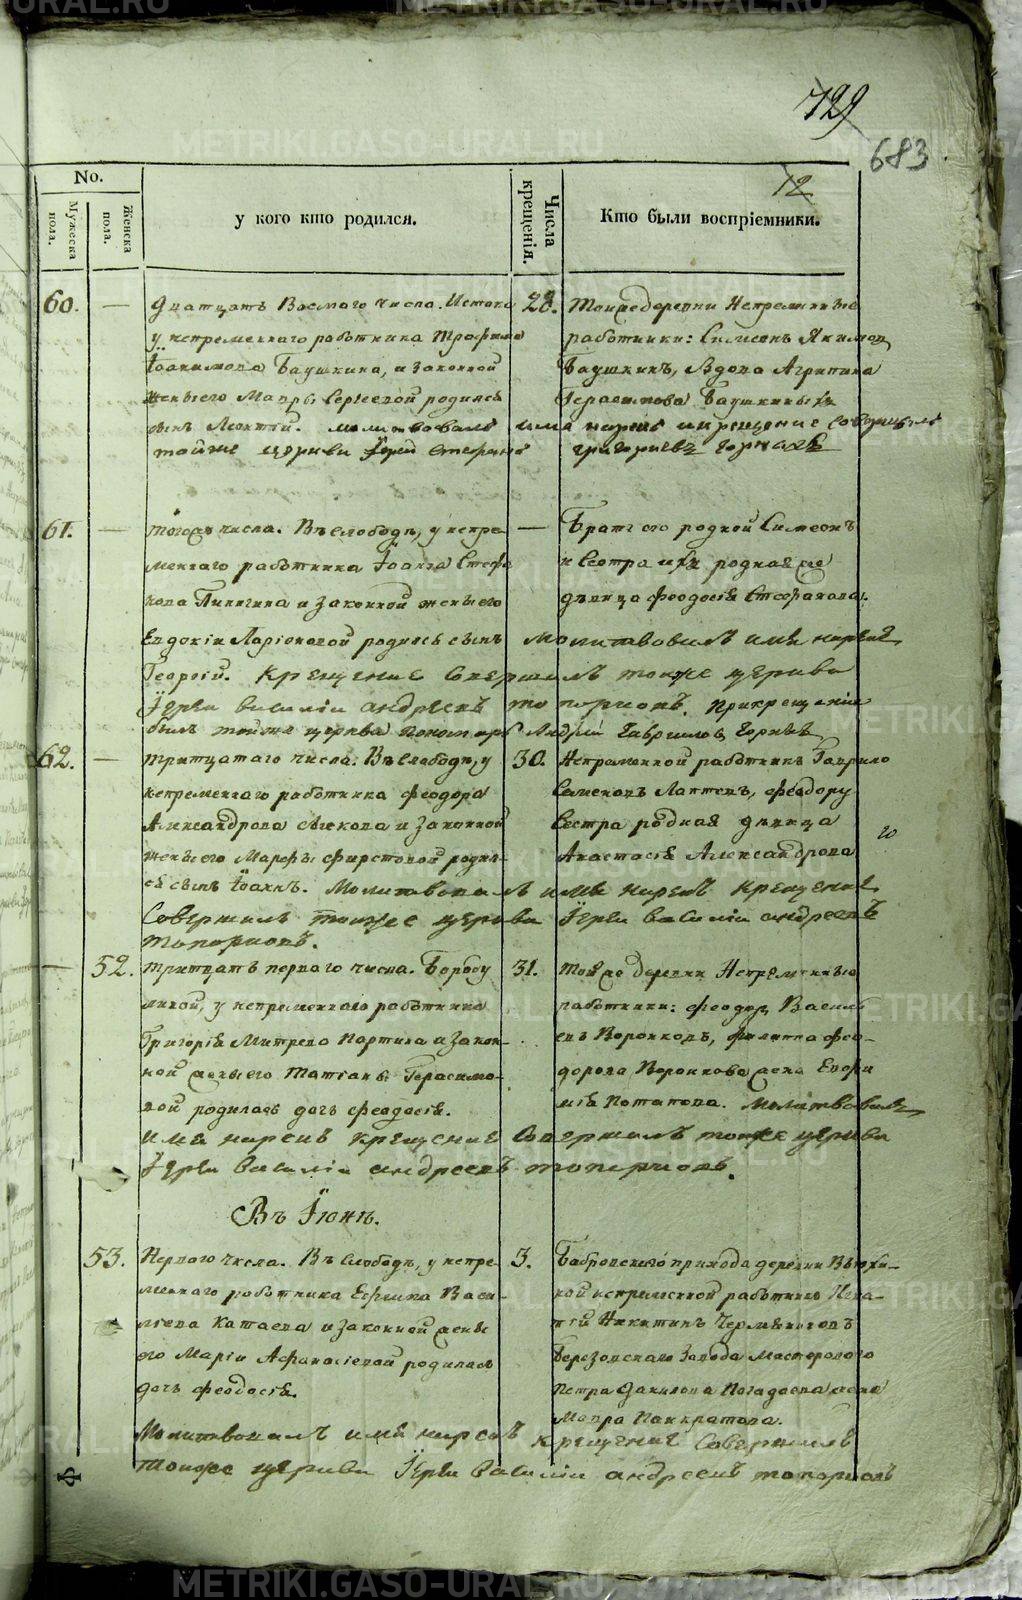 729
683
12
No.
Мужеска пола.
Женска пола.
у кого кто родился.
Числа крещенія.
Кто были воспріемники.
60. — Дватцать Восмаго числа. Истока
у непременнаго работника Трофима
Іоакимова Баушкина, и законной
жены его Мавры Сергеевой родился
сынъ Леонтій. молитвовалъ имя нарекъ и крещение совершилъ
тойже церкви Іерей Стефанъ григориевъ горныхъ
28. Тоижедеревни Непременные
работники: Симеонъ Якимов
Баушкинъ, Вдова Агрипина
Герасимова Баушкиныхъ
61. — тогожъ числа. Въ Слободѣ, у непре-
меннаго работника Іоанна Стефа
нова Пинягина и законной жены его
Евдокіи Ларіоновой родился сынъ молитвовалъ имя нарекъ
Георгій. Крещение Совершилъ тоиже церкви
Іереи василіи андреевъ топорковъ. Прикрещеніи
былъ тойже церкви пономарь Андрей Гавриловъ Горныхъ
— Братъ его родной Симеонъ
и Сестра ихъ родная же
дѣвица Феодосія Стефанова.
62. — тритцатаго числа. Въ Слободѣ, у
непременнаго работника Феодора
Александрова и законной
жены его Марфы Фирстовой родил-
ся сынъ Іоаннъ. Молитвовалъ имя нарекъ крещение
Совершилъ тоиже церкви Іереи василіи андреевъ
топорковъ.
30. Непременной работникъ Гаврило
Семеновъ Лаптевъ, Феодору
Сестра родная дѣвица
Анастасія Александрова
— 52. тритцать перваго числа.
у непременнаго работника
Григорія Митрева и закон-
ной жены его Татіаны Герасимо-
вой родилась дочь Феодосія.
имя нарекъ крещение Совершилъ тоиже церкви
Іереи василіи андреевъ топорковъ.
31. тойже деревни Непременные
работники: Феодоръ Василь
евъ Воронковъ, Филиппа Фео-
дорова Воронкова жена Евфи
мія Потапова. Молитвовалъ
Въ Іюнѣ.
53. Перваго числа. Въ Слободѣ, у непре-
меннаго работника Ефима Васи-
лиева Катаева и законной жены
его Маріи Афанасіевой родилась
дочь Феодосія.
Молитвовалъ имя нарекъ крещение Совершилъ
тоиже церкви Іереи василіи андреевъ топорковъ
3. Бобровскаго прихода деревни
непременной работникъ Игна-
тій Никитинъ
Березовскаго Завода Мастероваго
Петра Данилова Погадаева жена
Мавра Панкратова.
METRIKI.GASO-URAL.RU